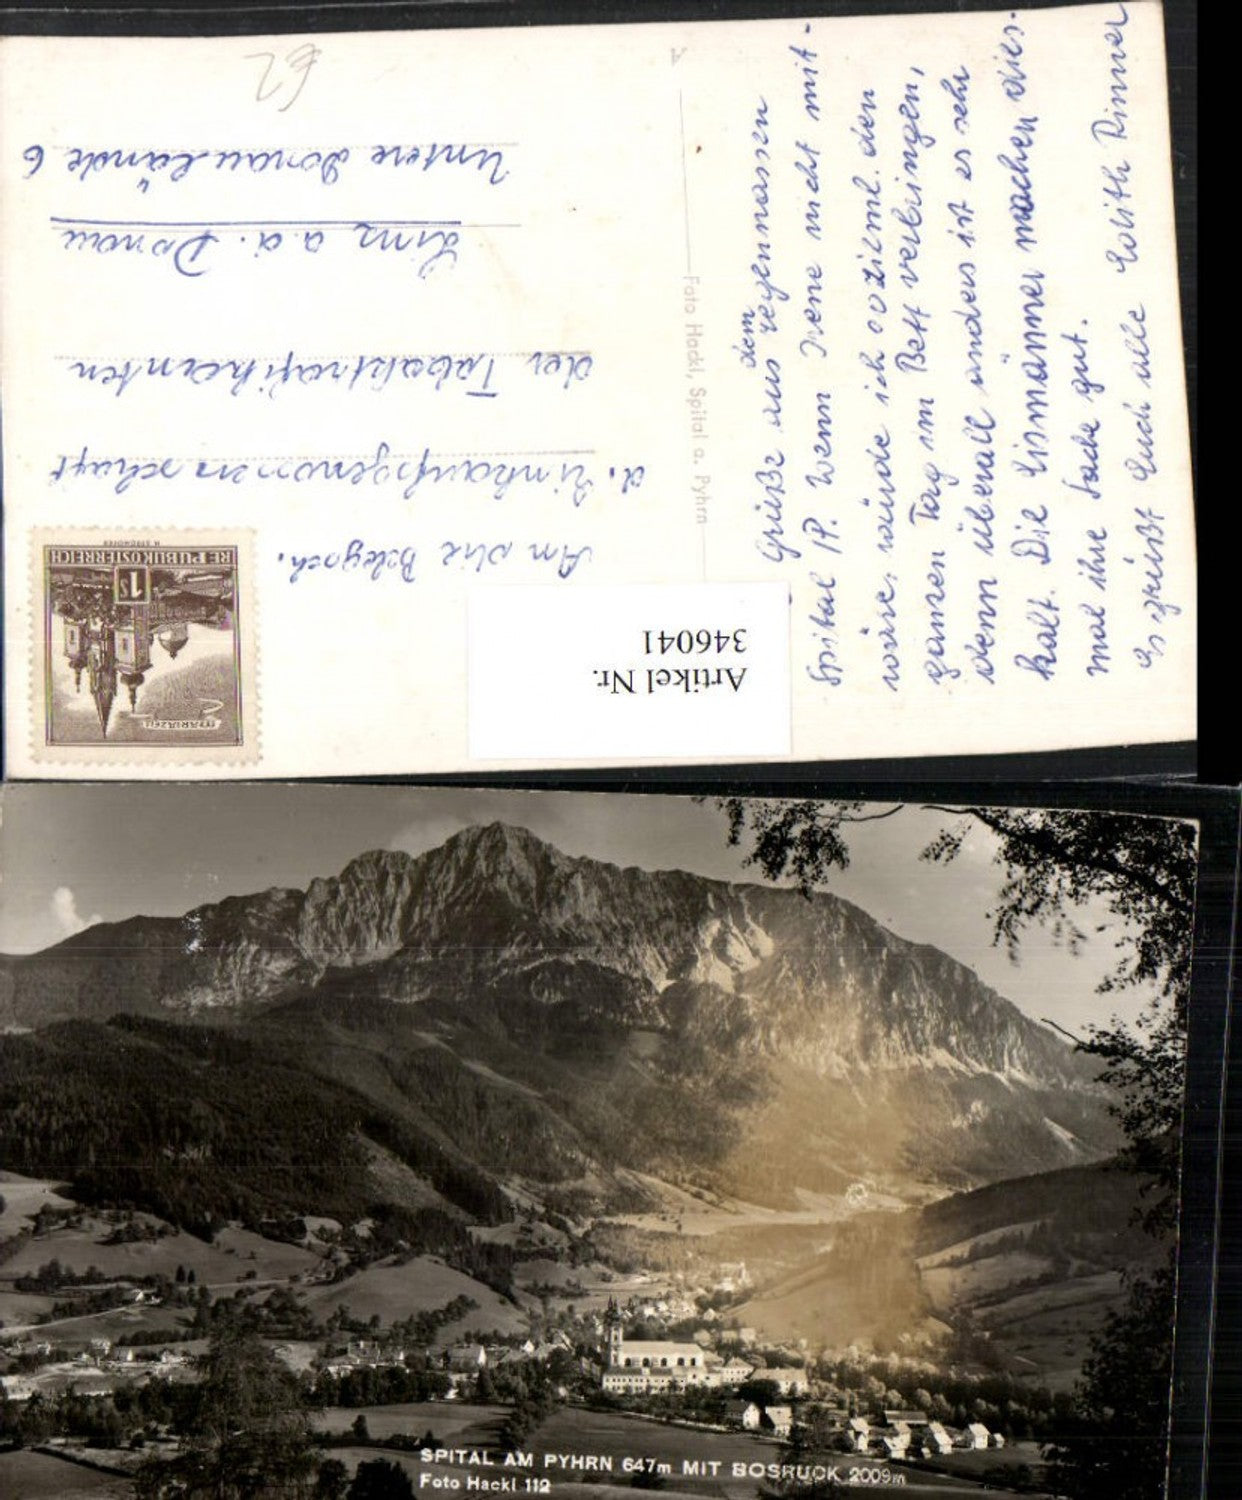 €2
Grüße aus dem regennassen
Spital /P. Wenn Irene nicht mit-
wäre, würde ich so ziemL. den
ganzen Tag im Bett verbringen,
denn überall anders ist es sehr
kalt. Die Eismänner machen dies-
mal ihre Sache gut.
Es grüßt Euch alle Edith Rinner
Foto Hackl, Spital a. Pyhrn
An die Belegsch.
d. Einkaufsgenossenschaft
der Tabaktrafikanten
Linz a.d. Donau
Untere Donaulände 6
REPUBLIK ÖSTERREICH
1S
MARIAZELL
Artikel Nr.
346041
SPITAL AM PYHRN 647m MIT BOSRUCK 2009m
Foto Hackl 112